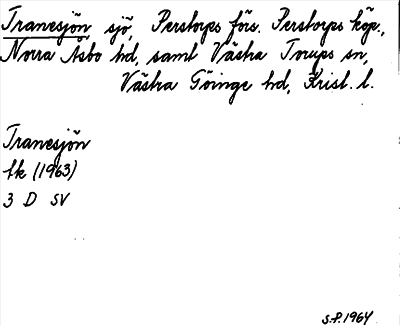 Tranesjön, sjö, Perstorps förs. Perstorps köp.,
Norra Åsbo hd, samt Västra Torups sn,
Västra Göinge hd, Krist. l.
Tranesjön
tk (1963)
3 D SV
S.P. 1964